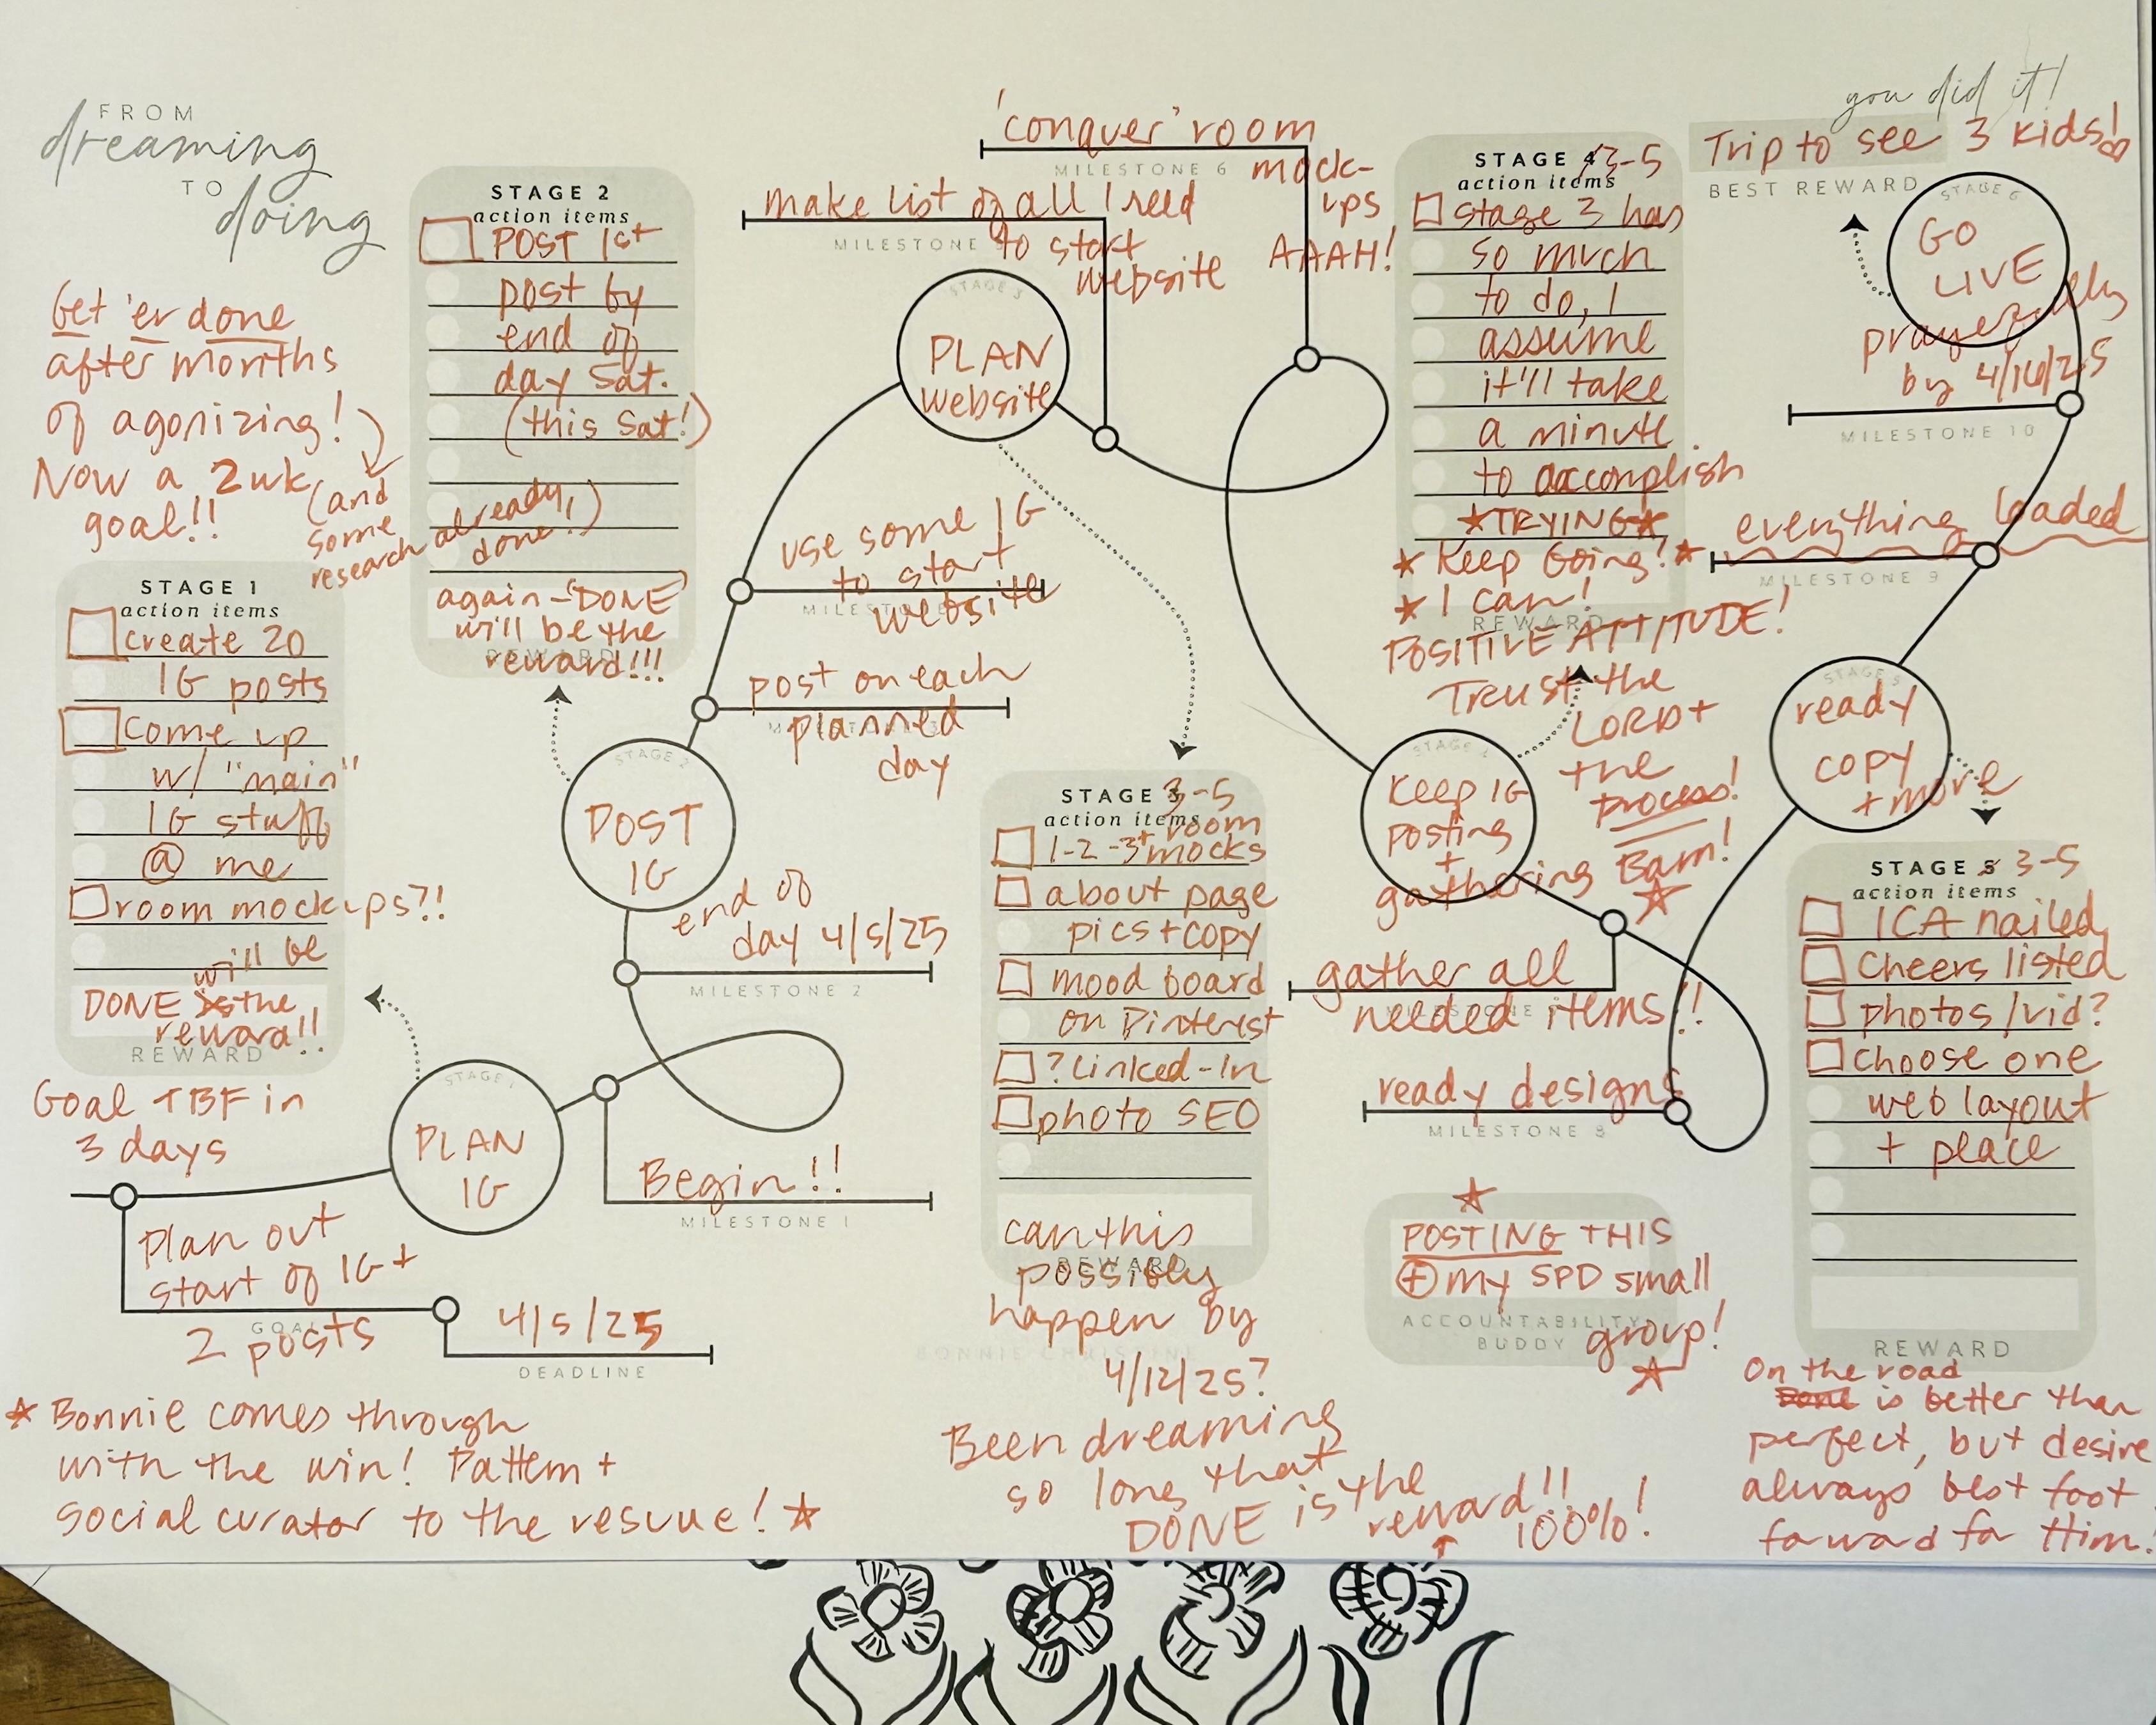 FROM
dreaming
TO
doing
Get 'er done
after months
of agonizing!
Now a 2wk
goal!!
(and
some
research already
done!!)
STAGE 1
action items
create 20
IG posts
Come up
w/ "main"
IG stuff
@ me
room mockups?!
will be
DONE is the
reward!!
REWARD
Goal TBF in
3 days
Plan out
start of IG +
2 posts
GOAL
4/5/25
DEADLINE
STAGE 1
PLAN
IG
Begin!!
MILESTONE 1
STAGE 2
action items
POST 1st
post by
end of
day Sat.
(this Sat!)
again - "DONE"
will be the
reward!!!
REWARD
STAGE 2
POST
IG
end of
day 4/5/25
MILESTONE 2
post on each
planned
day
use some IG
to start
website
STAGE 3
PLAN
website
make list of all I need
to start
website
MILESTONE
'conquer' room
mock-
ups
AAAH!
MILESTONE 6
STAGE 3-5
action items
1-2-3+ room
mocks
about page
pics + copy
mood board
on Pinterest
? Linked-In
photo SEO
REWARD
can this
possibly
happen by
4/12/25?
BONNIE CHRISTINE
STAGE 4 3-5
action items
stage 3 has
so much
to do, I
assume
it'll take
a minute
to accomplish
*TRYING*
* Keep Going! *
* I can!
REWARD
POSITIVE ATTITUDE!
Trust the
LORD +
the
process!
Bam!
STAGE 4
Keep IG
posting
+
gathering
gather all
needed items!!
ready designs
MILESTONE 8
POSTING THIS
+ my SPD small
group!
ACCOUNTABILITY
BUDDY
STAGE 5
ready
copy
+ more
STAGE 5 3-5
action items
ICA nailed
Cheers listed
photos/vid?
Choose one
web layout
+ place
REWARD
On the road
Done is better than
perfect, but desire
always best foot
forward for Him!
everything loaded
MILESTONE 9
prayerfully
by 4/16/25
MILESTONE 10
STAGE 6
GO
LIVE
you did it!
Trip to see 3 kids!
BEST REWARD
* Bonnie comes through
with the win! Pattern +
social curator to the rescue! *
Been dreaming
so long that
DONE is the
reward!!
100%!